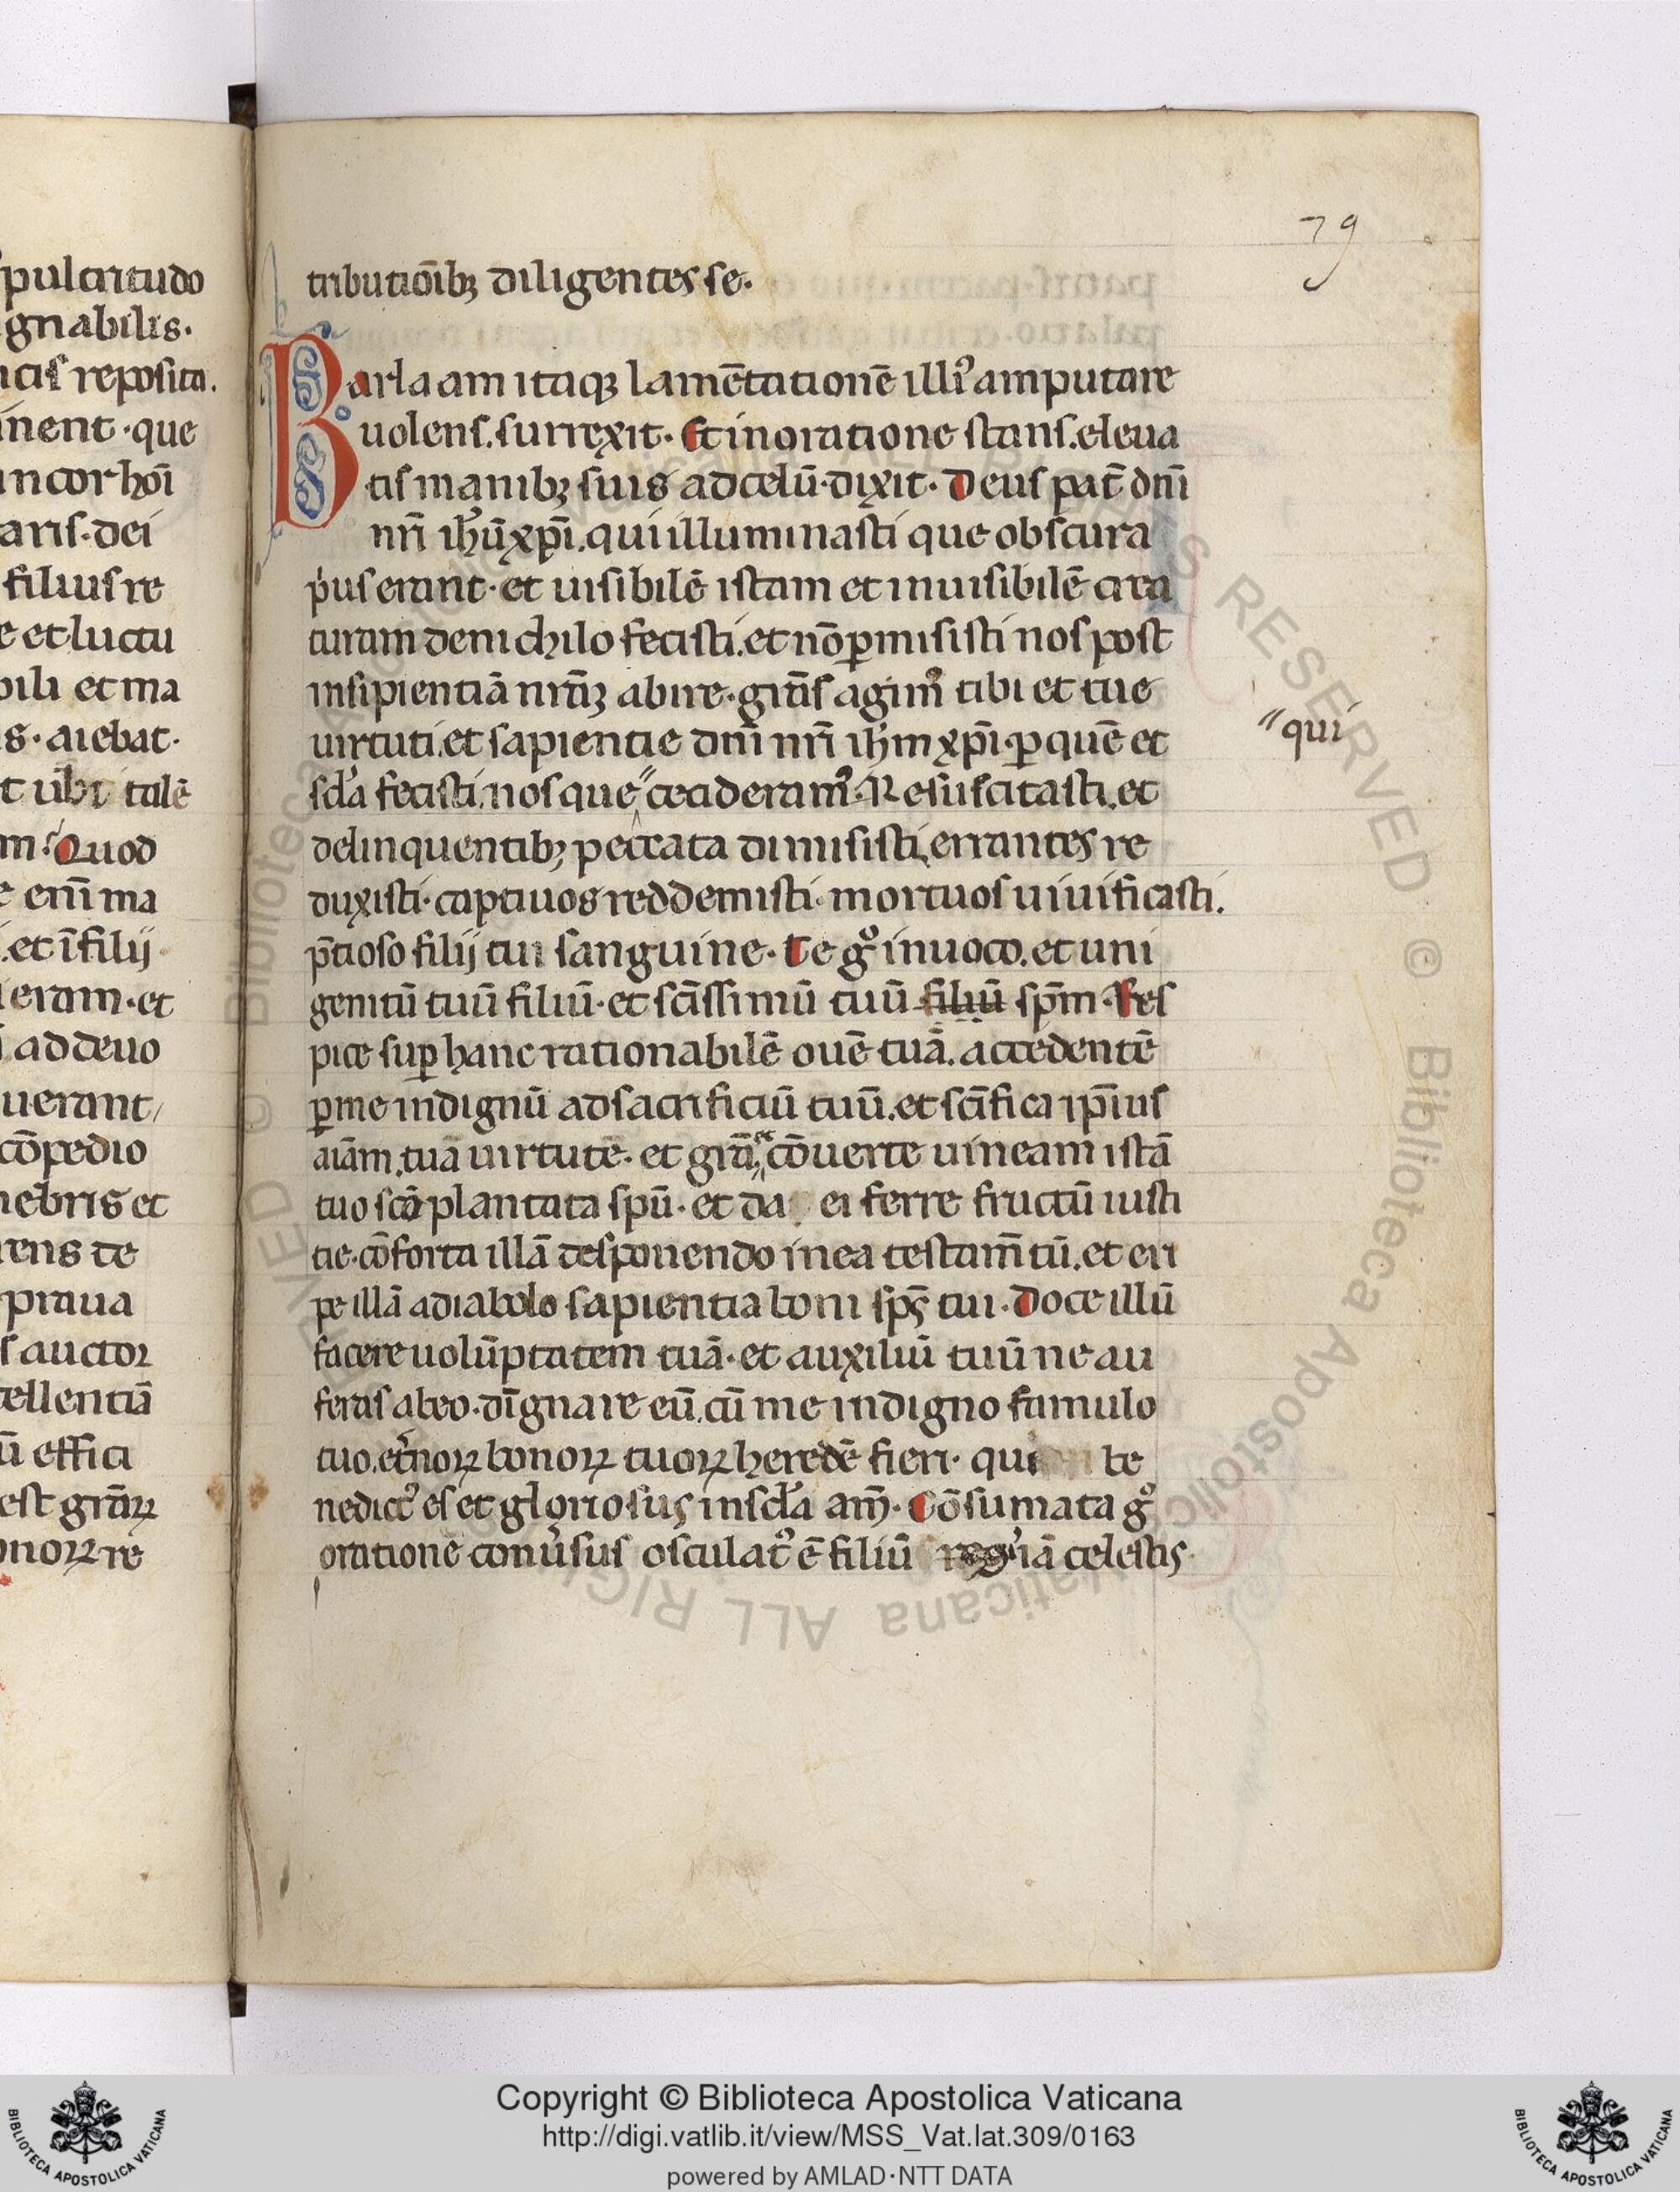 pulcritudo
gnabilis.
reposita.
nent · que
in cor hoī
aris. dei
filius re
et luctu
bili et ma
s. aiebat.
t ubi talē
m. Quod
enī ma
et ī filij
eram. et
ad deuo
uerant
cōpedio
nebris et
rens te
praua
s auctor
cellentiā
ū effici
est grāꝝ
onoꝝ re
79
tributiōibꝫ diligentes se.
Barlaam itaqꝫ lamētationē illiꝰ amputare
uolens. surrexit. Et in oratione stans. eleua
tis manibꝫ suis ad celū. dixit. Deus pat̄ dn̄i
nr̄i ih̄u xp̄i. qui illuminasti que obscura
pͥus erant. et uisibilē istam et inuisibilē crea
turam de nichilo fecisti. et nō ꝑmisisti nos post
insipientiā nr̄aꝫ abire. gr̄as agimꝰ tibi et tue
uirtuti. et sapientie dn̄i nr̄i ih̄m xp̄i. ꝑ quē et
sc̄la fecisti. nosque ʺ cecideramꝰ. Resuscitasti. et
ʺqui
delinquentibꝫ peccata dimisisti. errantes re
duxisti. captiuos reddemisti. mortuos uiuificasti.
p̄tioso filij tui sanguine. Te gͦ inuoco. et uni
genitū tuū filiū. et sc̄issimū tuū filiū sp̄m. Res
pice suꝑ hanc rationabilē ouē tuā. accedentē
ꝑ me indignū ad sacrificiū tuū. et sc̄ifica ip̄ius
aīam. tua uirtute. et gr̄a. et cōuerte uineam istā
tuo sc̄o plantata spū. et da ei ferre fructū iusti
tie. cōforta illā desponendo in ea testam̄tū. et eri
pe illā a diabolo sapientia boni sp̄s tui. Doce illū
facere uolūptatem tuā. et auxiliū tuū ne au
feras ab eo. dīgnare eū. cū me indigno famulo
tuo. et̓noꝝ bonoꝝ tuoꝝ heredē fieri. qui be
nedictꝰ es et gloriosus in sc̄la am̄. Cōsumata gͦ
oratione conu̓sus osculatꝰ ē filiū iā celestis.
Copyright © Biblioteca Apostolica Vaticana
http://digi.vatlib.it/view/MSS_Vat.lat.309/0163
powered by AMLAD·NTT DATA
BIBLIOTECA APOSTOLICA VATICANA
BIBLIOTECA APOSTOLICA VATICANA